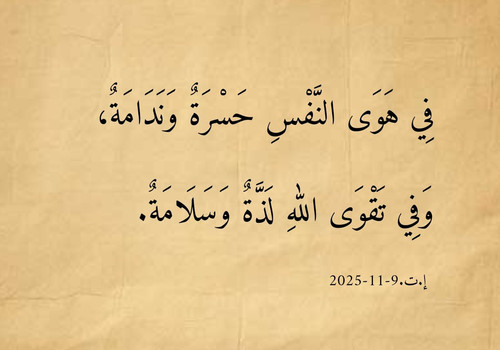 فِي هَوَى النَّفْسِ حَسْرَةٌ وَنَدَامَةٌ،
وَفِي تَقْوَى اللهِ لَذَّةٌ وَسَلَامَةٌ.
إ.ت.9-11-2025